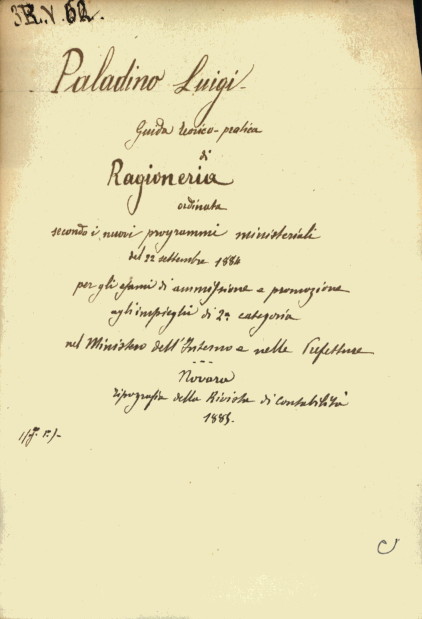 3R.V.62.
Paladino Luigi-
Guida teorico-pratica
di
Ragioneria
ordinata
secondo i nuovi programmi ministeriali
del 22 settembre 1884
per gli esami di ammissione e promozione
agli impieghi di 2ª categoria
nel Ministero dell'Interno e nelle Prefetture
---
Novara
Tipografia della Rivista di Contabilità
1885.